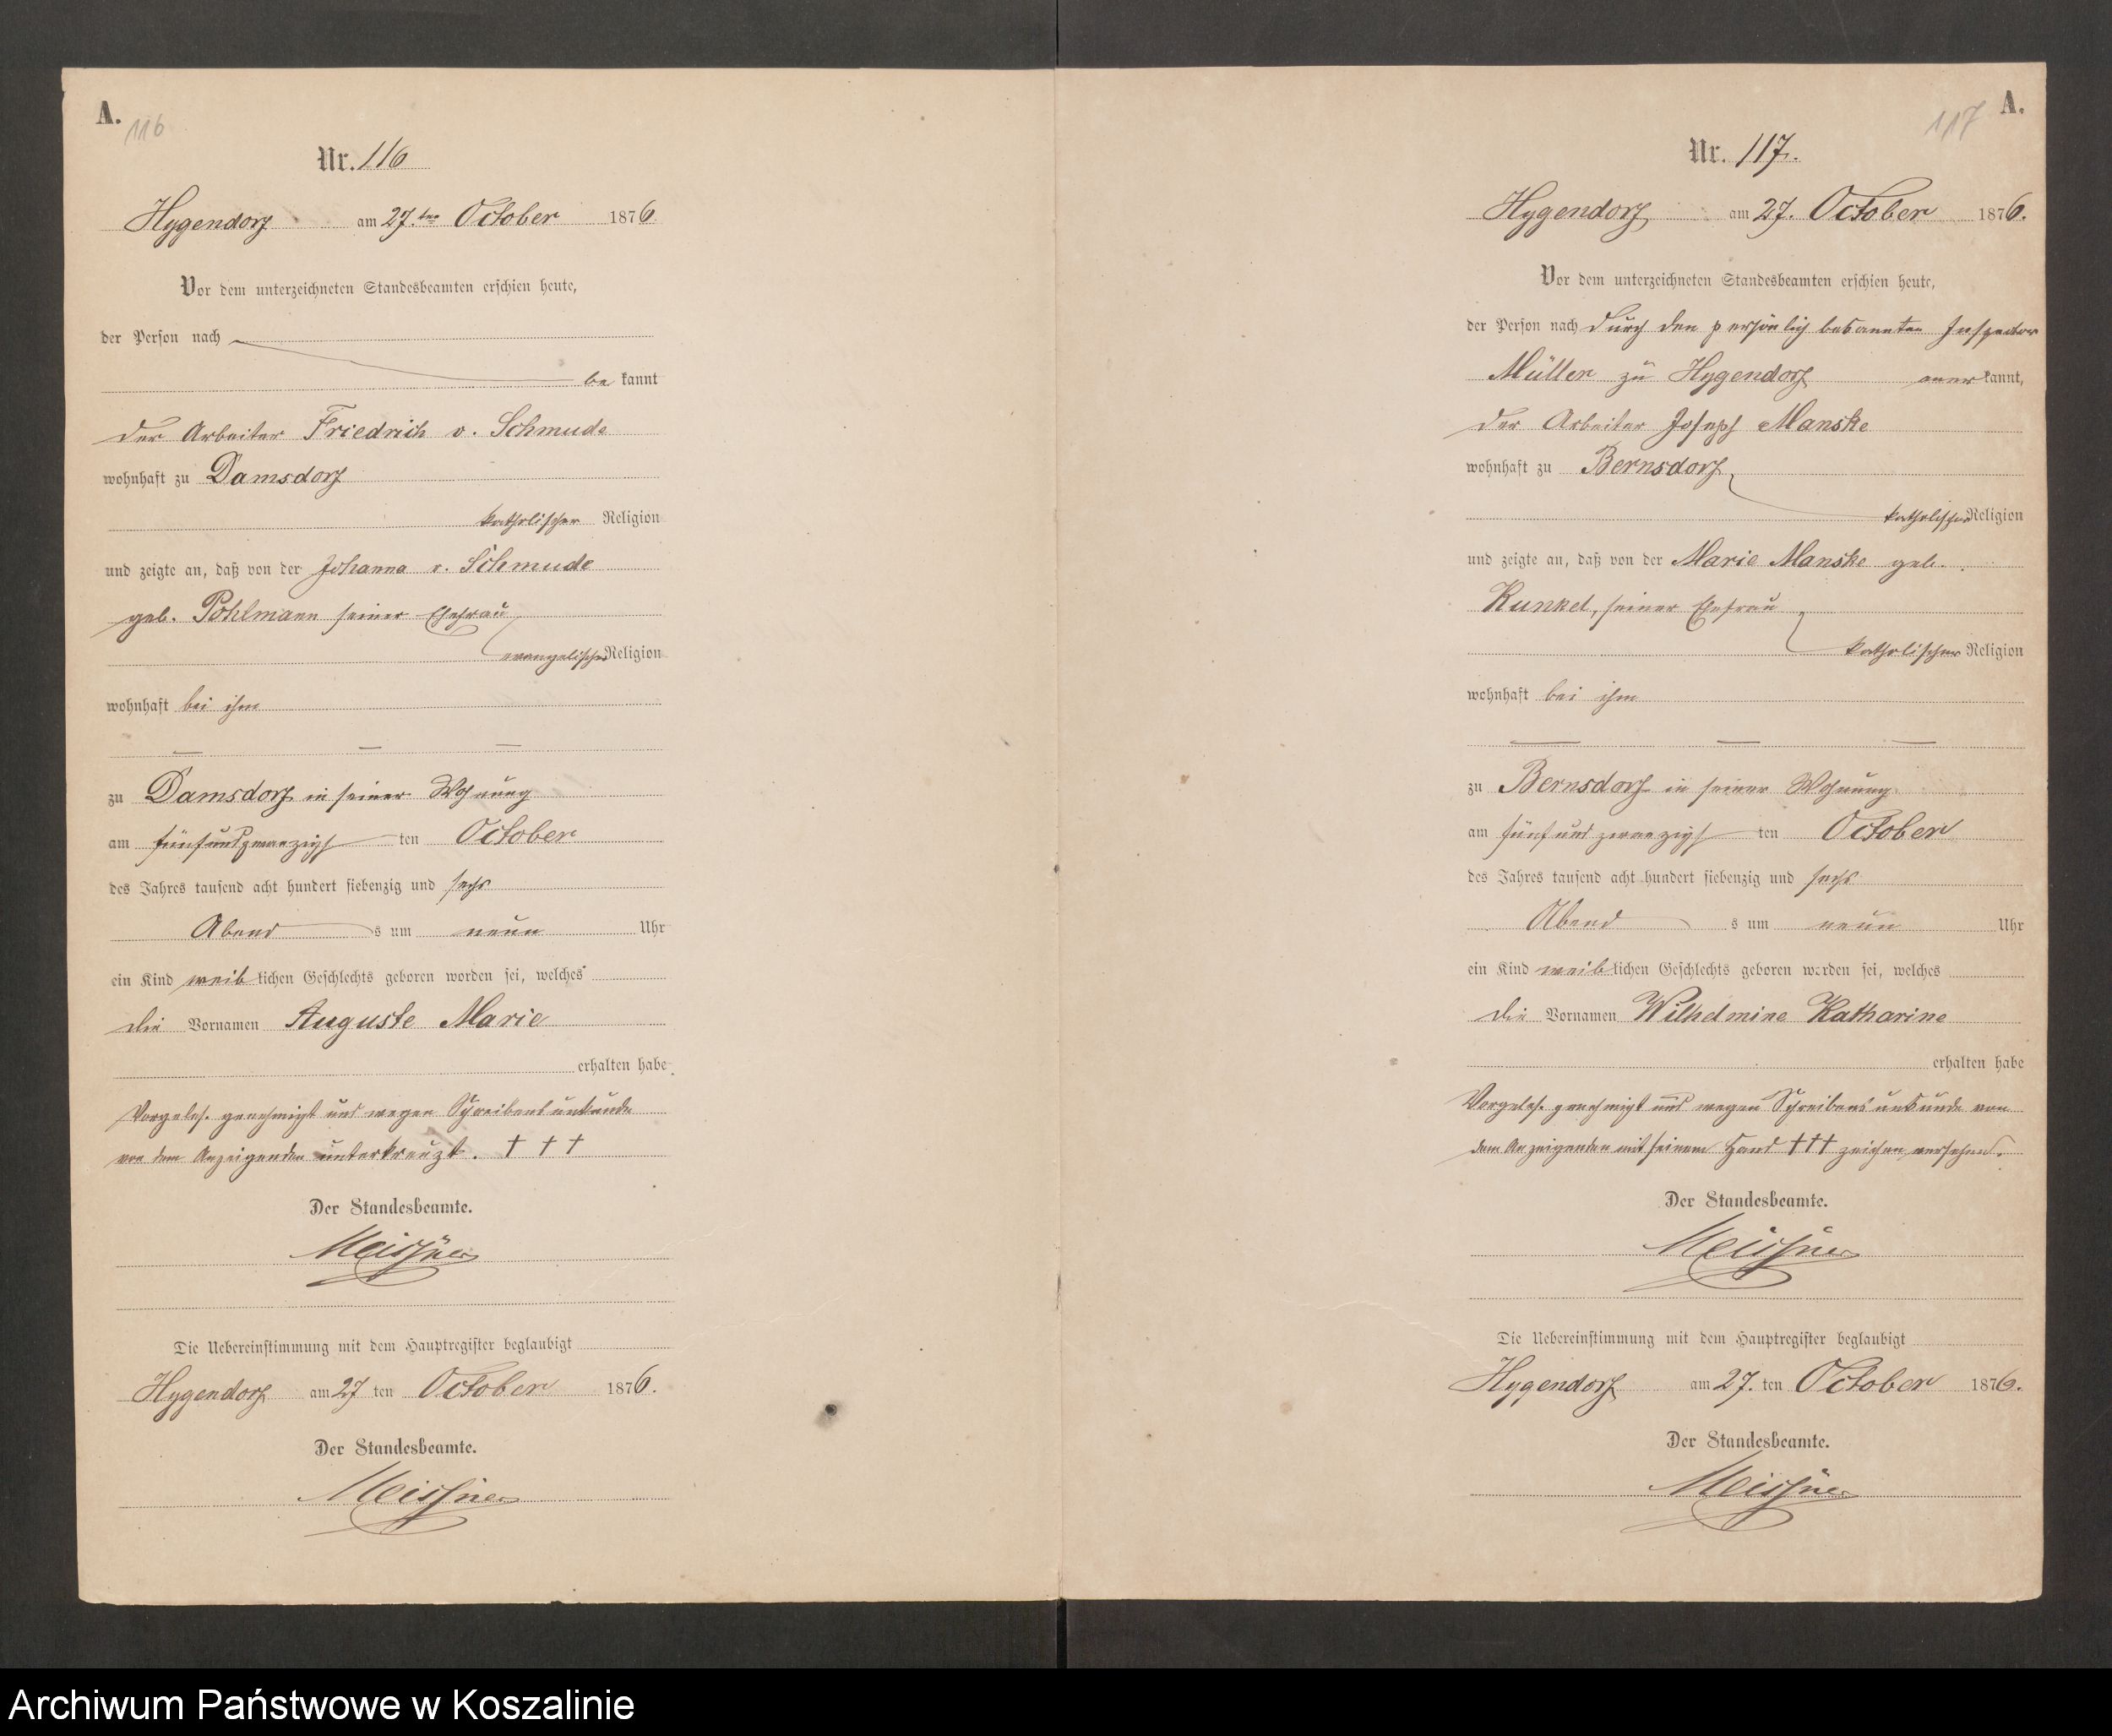 A.
116
Nr. 116
Hygendorf am 27.ten October 1876
Vor dem unterzeichneten Standesbeamten erschien heute,
der Person nach
be kannt
der Arbeiter Friedrich v. Schmude
wohnhaft zu Damsdorf
katholischer Religion
und zeigte an, daß von der Johanna v. Schmude
geb. Pohlmann seiner Ehefrau
evangelischer Religion
wohnhaft bei ihm
zu Damsdorf in seiner Wohnung
am fünfundzwanzigs ten October
des Jahres tausend acht hundert siebenzig und sechs
Abend s um neun Uhr
ein Kind weib lichen Geschlechts geboren worden sei, welches
die Vornamen Auguste Marie
erhalten habe
Vorgeles. genehmigt und wegen Schreibensunkunde
von dem Anzeigenden unterkreuzt. † † †
Der Standesbeamte.
Meissner
Die Uebereinstimmung mit dem Hauptregister beglaubigt
Hygendorf am 27 ten October 1876.
Der Standesbeamte.
Meissner
A.
117
Nr. 117.
Hygendorf am 27. October 1876.
Vor dem unterzeichneten Standesbeamten erschien heute,
der Person nach durch den persönlich bekannten Inspector
Müller zu Hygendorf aner kannt,
der Arbeiter Joseph Manske
wohnhaft zu Bernsdorf
katholischer Religion
und zeigte an, daß von der Marie Manske geb.
Kunkel, seiner Ehefrau
katholischer Religion
wohnhaft bei ihm
zu Bernsdorf in seiner Wohnung
am fünfundzwanzigs ten October
des Jahres tausend acht hundert siebenzig und sechs
Abend s um neun Uhr
ein Kind weib lichen Geschlechts geboren worden sei, welches
die Vornamen Wilhelmine Katharine
erhalten habe
Vorgeles. genehmigt und wegen Schreibensunkunde von
dem Anzeigenden mit seinem Hand † † † zeichen versehen.
Der Standesbeamte.
Meissner
Die Uebereinstimmung mit dem Hauptregister beglaubigt
Hygendorf am 27. ten October 1876.
Der Standesbeamte.
Meissner
Archiwum Państwowe w Koszalinie